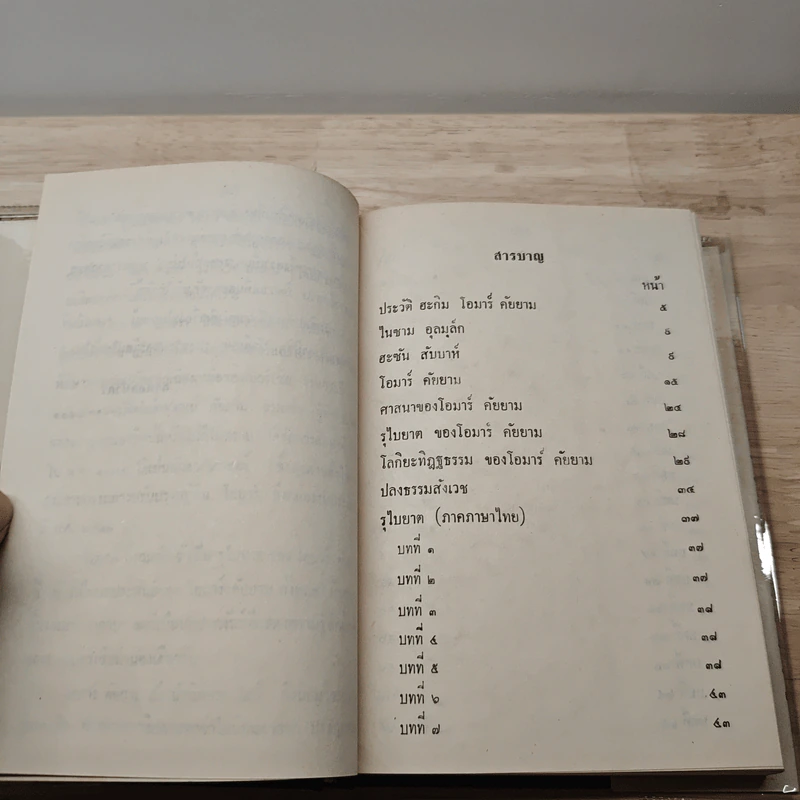 สารบาญ
หน้า
ประวัติ ฮะกิม โอมาร์ คัยยาม ๕
ในชาม อุลมุล์ก
ฮะซัน สับบาห์ ๙
โอมาร์ คัยยาม ๑๕
ศาสนาของโอมาร์ คัยยาม ๒๔
รุไบยาต ของโอมาร์ คัยยาม ๒๘
โลกิยะทิฏฐธรรม ของโอมาร์ คัยยาม ๒๙
ปลงธรรมสังเวช ๓๔
รุไบยาต (ภาคภาษาไทย) ๓๗
บทที่ ๑ ๓๗
บทที่ ๒ ๓๗
บทที่ ๓ ๓๘
บทที่ ๔ ๓๘
บทที่ ๕ ๓๘
บทที่ ๖ ๔๓
บทที่ ๗ ๔๓